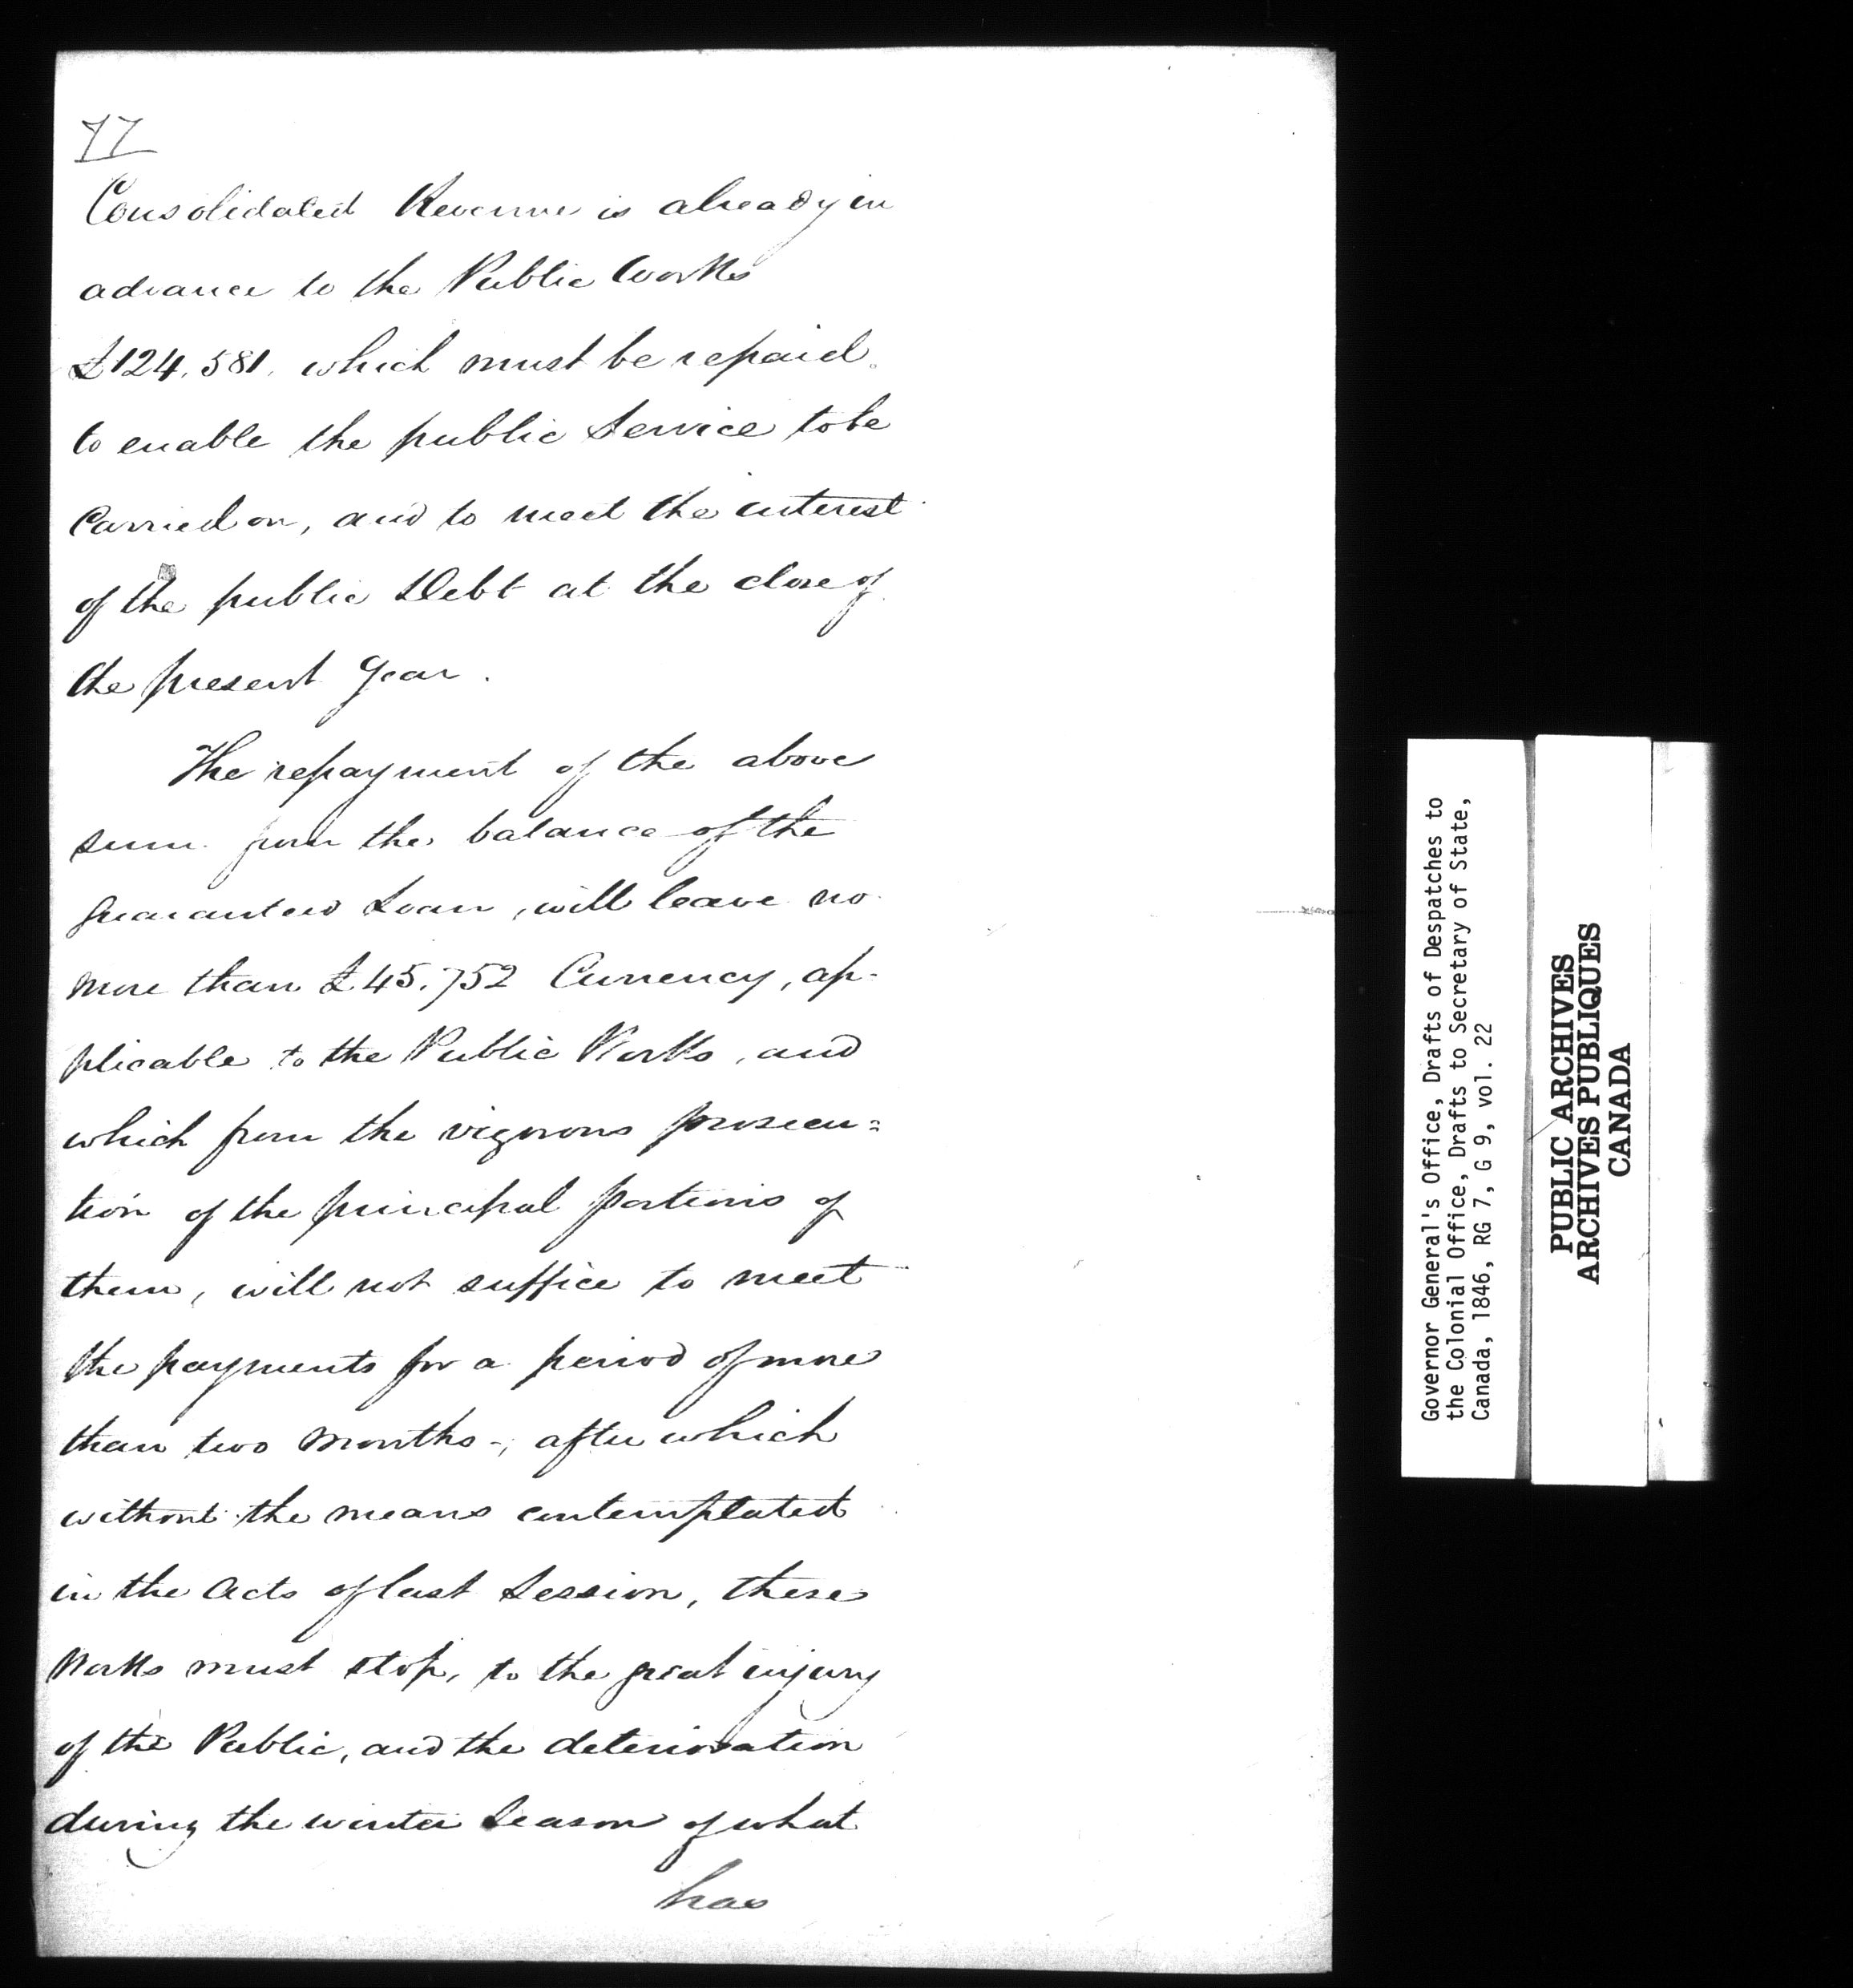 77
Consolidated Revenue is already in
advance to the Public Works
£124,581, which must be repaid
to enable the public Service to be
Carried on, and to meet the interest
of the public Debt at the close of
the present Year.
The repayment of the above
sum from the balance of the
guaranteed Loan, will leave no
more than £45,752 Currency, ap-
plicable to the Public Works, and
which from the vigorous prosecu=
tion of the principal portions of
them, will not suffice to meet
the payments for a period of more
than two Months -; after which
without the means contemplated
in the Acts of last Session, these
Works must stop, to the great injury
of the Public, and the deterioration
during the winter Season of what
has
Governor General's Office, Drafts of Despatches to
the Colonial Office, Drafts to Secretary of State,
Canada, 1846, RG 7, G 9, vol. 22
PUBLIC ARCHIVES
ARCHIVES PUBLIQUES
CANADA